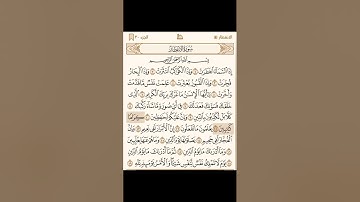 الانفطار
الجزء ٣٠
سُورَةُ الانفِطَارِ
بِسْمِ ٱللَّهِ ٱلرَّحْمَٰنِ ٱلرَّحِيمِ
إِذَا ٱلسَّمَآءُ ٱنفَطَرَتْ ١ وَإِذَا ٱلْكَوَاكِبُ ٱنتَثَرَتْ ٢ وَإِذَا ٱلْبِحَارُ
فُجِّرَتْ ٣ وَإِذَا ٱلْقُبُورُ بُعْثِرَتْ ٤ عَلِمَتْ نَفْسٌ مَّا قَدَّمَتْ
وَأَخَّرَتْ ٥ يَٰٓأَيُّهَا ٱلْإِنسَٰنُ مَا غَرَّكَ بِرَبِّكَ ٱلْكَرِيمِ ٦ ٱلَّذِى
خَلَقَكَ فَسَوَّىٰكَ فَعَدَلَكَ ٧ فِىٓ أَىِّ صُورَةٍ مَّا شَآءَ رَكَّبَكَ ٨
كَلَّا بَلْ تُكَذِّبُونَ بِٱلدِّينِ ٩ وَإِنَّ عَلَيْكُمْ لَحَٰفِظِينَ ١٠ كِرَامًا
كَٰتِبِينَ ١١ يَعْلَمُونَ مَا تَفْعَلُونَ ١٢ إِنَّ ٱلْأَبْرَارَ لَفِى نَعِيمٍ ١٣ وَإِنَّ
ٱلْفُجَّارَ لَفِى جَحِيمٍ ١٤ يَصْلَوْنَهَا يَوْمَ ٱلدِّينِ ١٥ وَمَا هُمْ عَنْهَا بِغَآئِبِينَ
١٦ وَمَآ أَدْرَىٰكَ مَا يَوْمُ ٱلدِّينِ ١٧ ثُمَّ مَآ أَدْرَىٰكَ مَا يَوْمُ ٱلدِّينِ
١٨ يَوْمَ لَا تَمْلِكُ نَفْسٌ لِّنَفْسٍ شَيْـًٔا وَٱلْأَمْرُ يَوْمَئِذٍ لِّلَّهِ ١٩